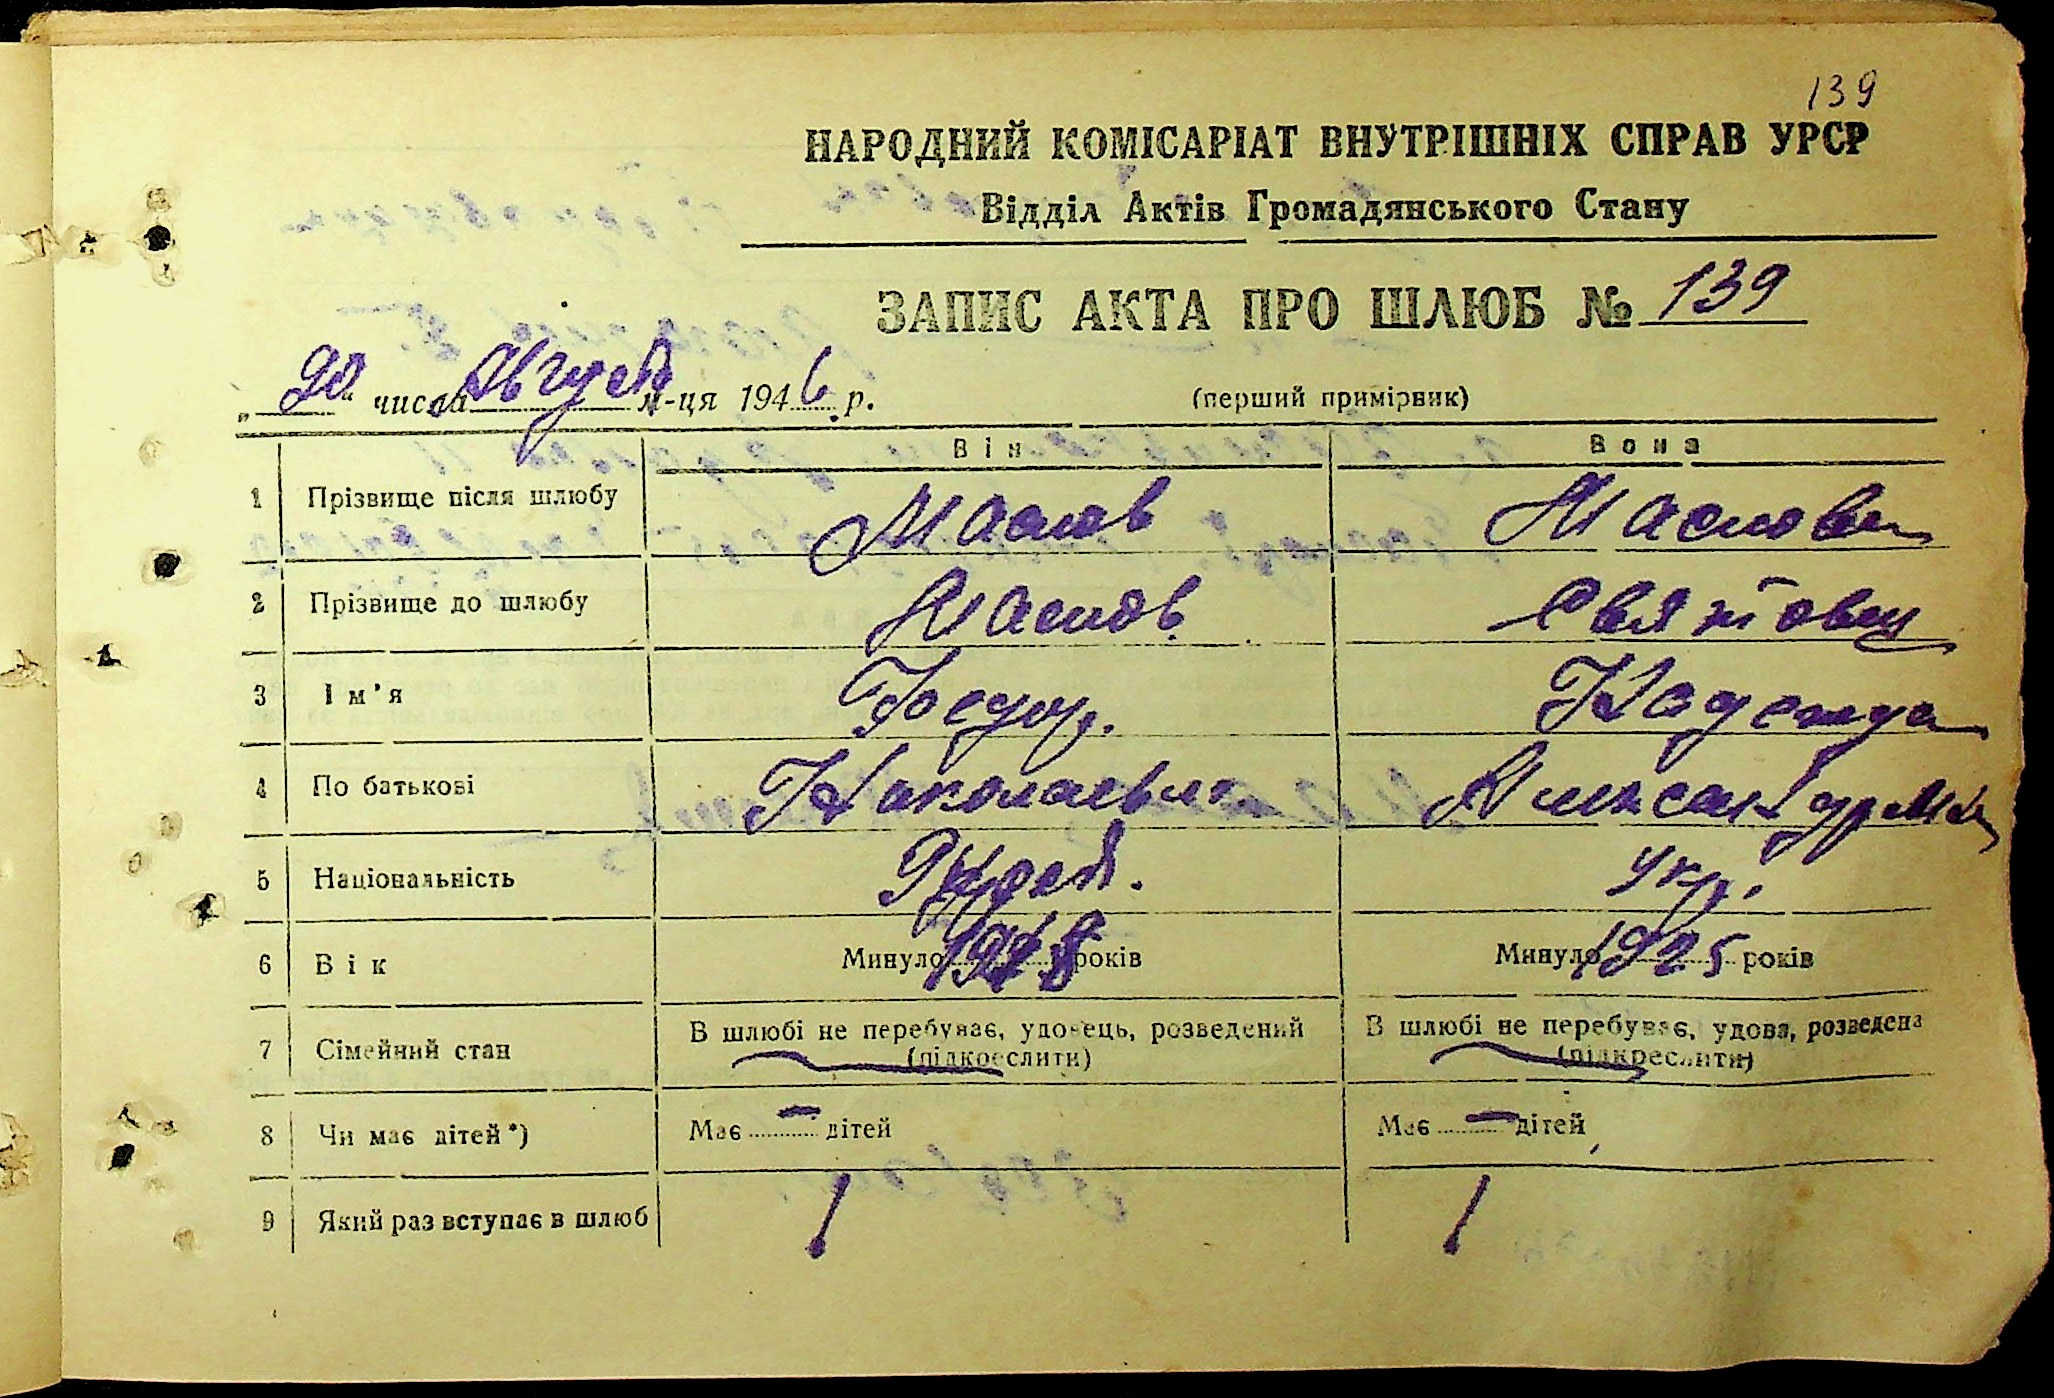 139
НАРОДНИЙ КОМІСАРІАТ ВНУТРІШНІХ СПРАВ УРСР
Відділ Актів Громадянського Стану
ЗАПИС АКТА ПРО ШЛЮБ № 139
„20“ числа август м-ця 1946 р. (перший примірник)
Він Вона
1 Прізвище після шлюбу Маслов Маслова
2 Прізвище до шлюбу Маслов Святовец
3 Ім'я Федор. Надежда
4 По батькові Николаевич
5 Національність Русск. Укр.
6 Вік Минуло років Минуло 1925 років
7 Сімейний стан В шлюбі не перебуває, удовець, розведений (підкреслити) В шлюбі не перебуває, удова, розведена (підкреслити)
8 Чи має дітей*) Має — дітей Має — дітей
9 Який раз вступає в шлюб 1 1